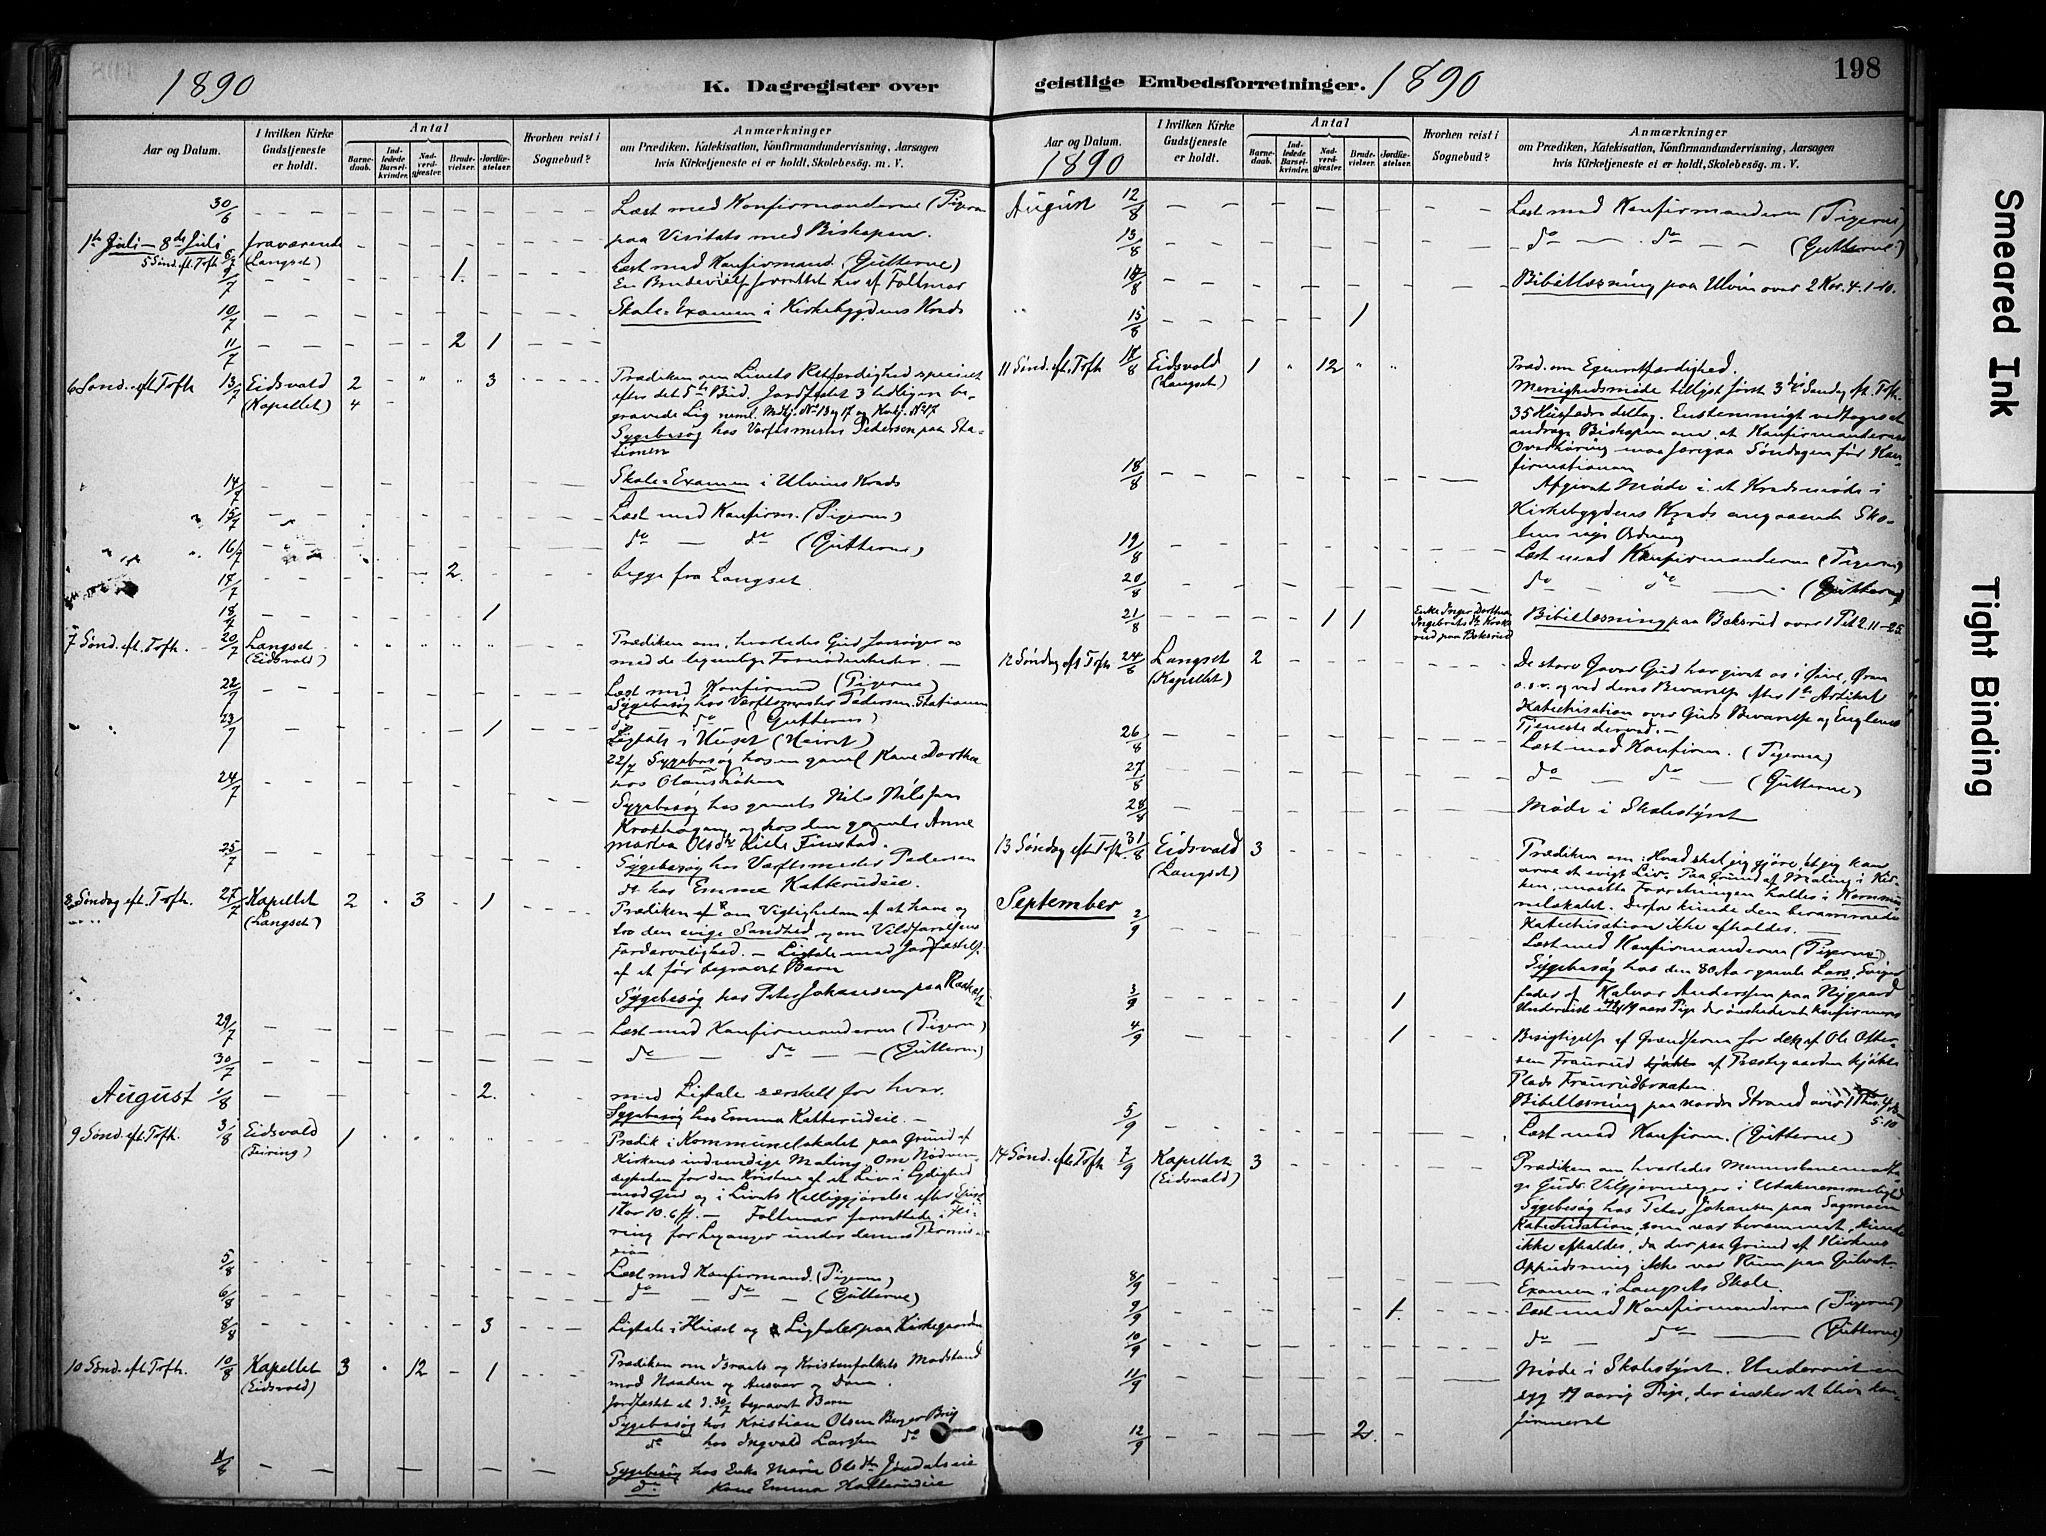 1890
K. Dagregister over
Aar og Datum.
I hvilken Kirke Gudstjeneste er holdt.
Antal
Barne-daab.
Ind-ledede Barsel-kvinder.
Nad-verd-gjester.
Brude-vielser.
Jordfæ-stelser.
Hvorhen reist i Sognebud?
Anmærkninger
om Prædiken, Katekisation, Konfirmandundervisning, Aarsagen
hvis Kirketjeneste ei er holdt, Skolebesög. m. V.
30/6 Læst med Konfirmanderne (Pigerne
paa Visitats med Biskopen.
1ste Juli – 8de Juli fraværende
5 Sønd. eft. Trefh. 6/7 (Langset) Læst med Konfirmand. (Gutterne)
9/7 1. En Brudevielse forrettet her af Foltmar
10/7 Skole-Examen i Kirkebygdens Kreds
11/7 2 1
6 Sønd. eft. Trefh 13/7 Eidsvold 2 3 Prædiken om Livets Retferdighed specielt
(Kapellet) 4 efter det 5te Bud. Jordfæstet 3 tidligere be-
gravede Lig neml.
Sygebesøg hos Værftsmester Pedersen paa Sta-
tionen
14/7 Skole-Examen i Ulvins Kreds
15/7 Læst med Konfirm. (Pigerne)
16/7 do — do (Gutterne)
17/7 2. begge fra Langset
18/7 1
7 Sønd. eft. Trefh. 20/7 Langset Prædiken om, hvorledes Gud forsørger os
(Eidsvold) med de legemlige Fornødenheder. —
22/7 Læst med Konfirmand (Pigerne)
Sygebesøg hos Værftsmester Pedersen. Stationen
23/7 1 do — do — (Gutterne)
Ligtale i Huset
22/7 Sygebesøg hos en gamel Kone Dorthea
24/7 hos
Sygebesøg hos gamle Nils Nilssen
og hos den gamle Anne
25/7 Marta Olsdtr Lille Finstad.
Sygebesøg hos Værftsmester Pedersen
do. hos Emma Katterudeie.
8de Søndag eft. Trefh. 27/7 Kapellet 2 3 1 Prædiken om Vigtigheden af at have og
(Langset) tro den evige Sandhed, og om Vildfarelsens
Fordærvelighed. — Ligtale med Jordfæstelse
af et før begravet Barn
Sygebesøg hos Peter Johansen paa
29/7 Læst med Konfirmanderne (Pigerne)
30/7 do — do — (Gutterne)
August 1/8 2. med Ligtale særskelt for hver.
Sygebesøg hos Emma Katterudeie. —
9 Sønd. eft. Trefh. 3/8 Eidsvold 1 Prædik i Kommunelokalet paa Grund af
(Feiring) Kirkens indvendige Maling. Om Nødven-
digheden for den Kristne af et Liv i Lydighed
mod Gud og i Livets Helliggjørelse efter Epist.
1 Kor 10. 6 ff. — Foltmar forrettede i Fei-
ring for Leganger under dennes Permis-
sion.
5/8 Læst med Konfirmand. (Pigerne)
6/8 do — do — (Gutterne)
8/8 3 Ligtale i Huset og Ligtaler paa Kirkegaarden
10 Sønd. eft. Trefh. 10/8 Kapellet 3 12 1 Prædiken om Israels og Kristenfolkets Modstand
(Eidsvold) mod Naaden og Ansvar og Dom.
Jordfæstet et d. 30/7 begravet Barn
Sygebesøg hos Kristian Olsen
do hos Ingvald Larssen do
11/8 Sygebesøg hos Enke Marie Olsdtr Jøndalseie
do. Kone Emma Katterudeie
geistlige Embedsforretninger.
1890
198
Aar og Datum.
1890
I hvilken Kirke Gudstjeneste er holdt.
Antal
Barne-daab.
Ind-ledede Barsel-kvinder.
Nad-verd-gjester.
Brude-vielser.
Jordfæ-stelser.
Hvorhen reist i Sognebud?
Anmærkninger
om Prædiken, Katekisation, Konfirmandundervisning, Aarsagen
hvis Kirketjeneste ei er holdt, Skolebesög. m. V.
August 12/8 Læst med Konfirmanderne (Pigerne)
13/8 do — do — (Gutterne)
14/8 Bibellæsning paa Ulvin over 2 Kor. 4. 1-10.
15/8 1
11 Sønd. eft. Trefh 17/8 Eidsvold 1 12 Præd. om Egenretfærdighed.
(Langset) Menighedsmøde
35 Husfædre deltog. Enstemmigt vedtoges at
andrage Biskopen om, at Konfirmandernes
Overhøring maa foregaa Søndagen før Kon-
18/8 firmationen
Møde i et Kredsmøde i
Kirkebygdens Kreds angaaende Sko-
lens nye Ordning
19/8 Læst med Konfirmanderne (Pigerne)
20/8 do do — (Gutterne)
21/8 1 1 Enke Inger Dorthea Ingebrets dtr paa Boksrud Bibellæsning paa Boksrud over 1 Pet 2. 11-25.
12 Søndag eft Trefh 24/8 Langset 2 De store Gaver Gud har givet os i Øine, Øren
(Kapellet) o.s.v. og ved deres Bevarelse efter 1ste Artikel
Katechisation over Guds Bevarelse og Englenes
Tjeneste derved. —
26/8 Læst med Konfirm. (Pigerne)
27/8 do — do — (Gutterne)
28/8 Møde i Skolestyret
13 Søndag eft. Trefh. 31/8 Eidsvold 3 Prædiken om: Hvad skal jeg gjøre, at jeg kan
(Langset) arve et evigt Liv. Paa Grund af Maling i Kir-
ken, maatte Forretningen holdes i Kommu-
nelokalet. Derfor kunde den berammede
Katechisation ikke afholdes. —
September 2/9 Læst med Konfirmanderne (Pigerne)
Sygebesøg hos den 80 Aar gamle Lars, Sviger-
3/9 1 fader af Halvor Anderssen paa Nygaard
Underviste en syg 17 aars Pige der ønskede at konfirmeres
4/9 1 Besigtigelse af Grændserne for det af Ole Otter-
sen Fraurud af Prestegaarden kjøbte
Plads Fraurudbraaten.
Bibellæsning paa nordre Strand over 1 Thes. 4. 5-10
5/9 Læst med Konfirm. (Gutterne)
14 Sønd. efter Trefh 7/9 Kapellet 3 Prædiken om hvorledes Menneskene modta-
(Eidsvold) ge Guds Velgjerninger i Utaknemmelighed
Sygebesøg hos Peter Johansen paa Sagmoen
Katechisation, som var berammet, kunde
ikke afholdes, da der paa Grund af Kirkens
Oppudsning ikke var Rum paa Gulvet.
8/9 Examen i Langsets Skole.
9/9 1. Læst med Konfirmanderne (Pigerne)
10/9 do — do — (Gutterne)
11/9 Møde i Skolestyret. Undervist en
syg 17 aarig Pige, der ønsker at blive kon-
firmeret
12/9 2.
Smeared Ink
Tight Binding